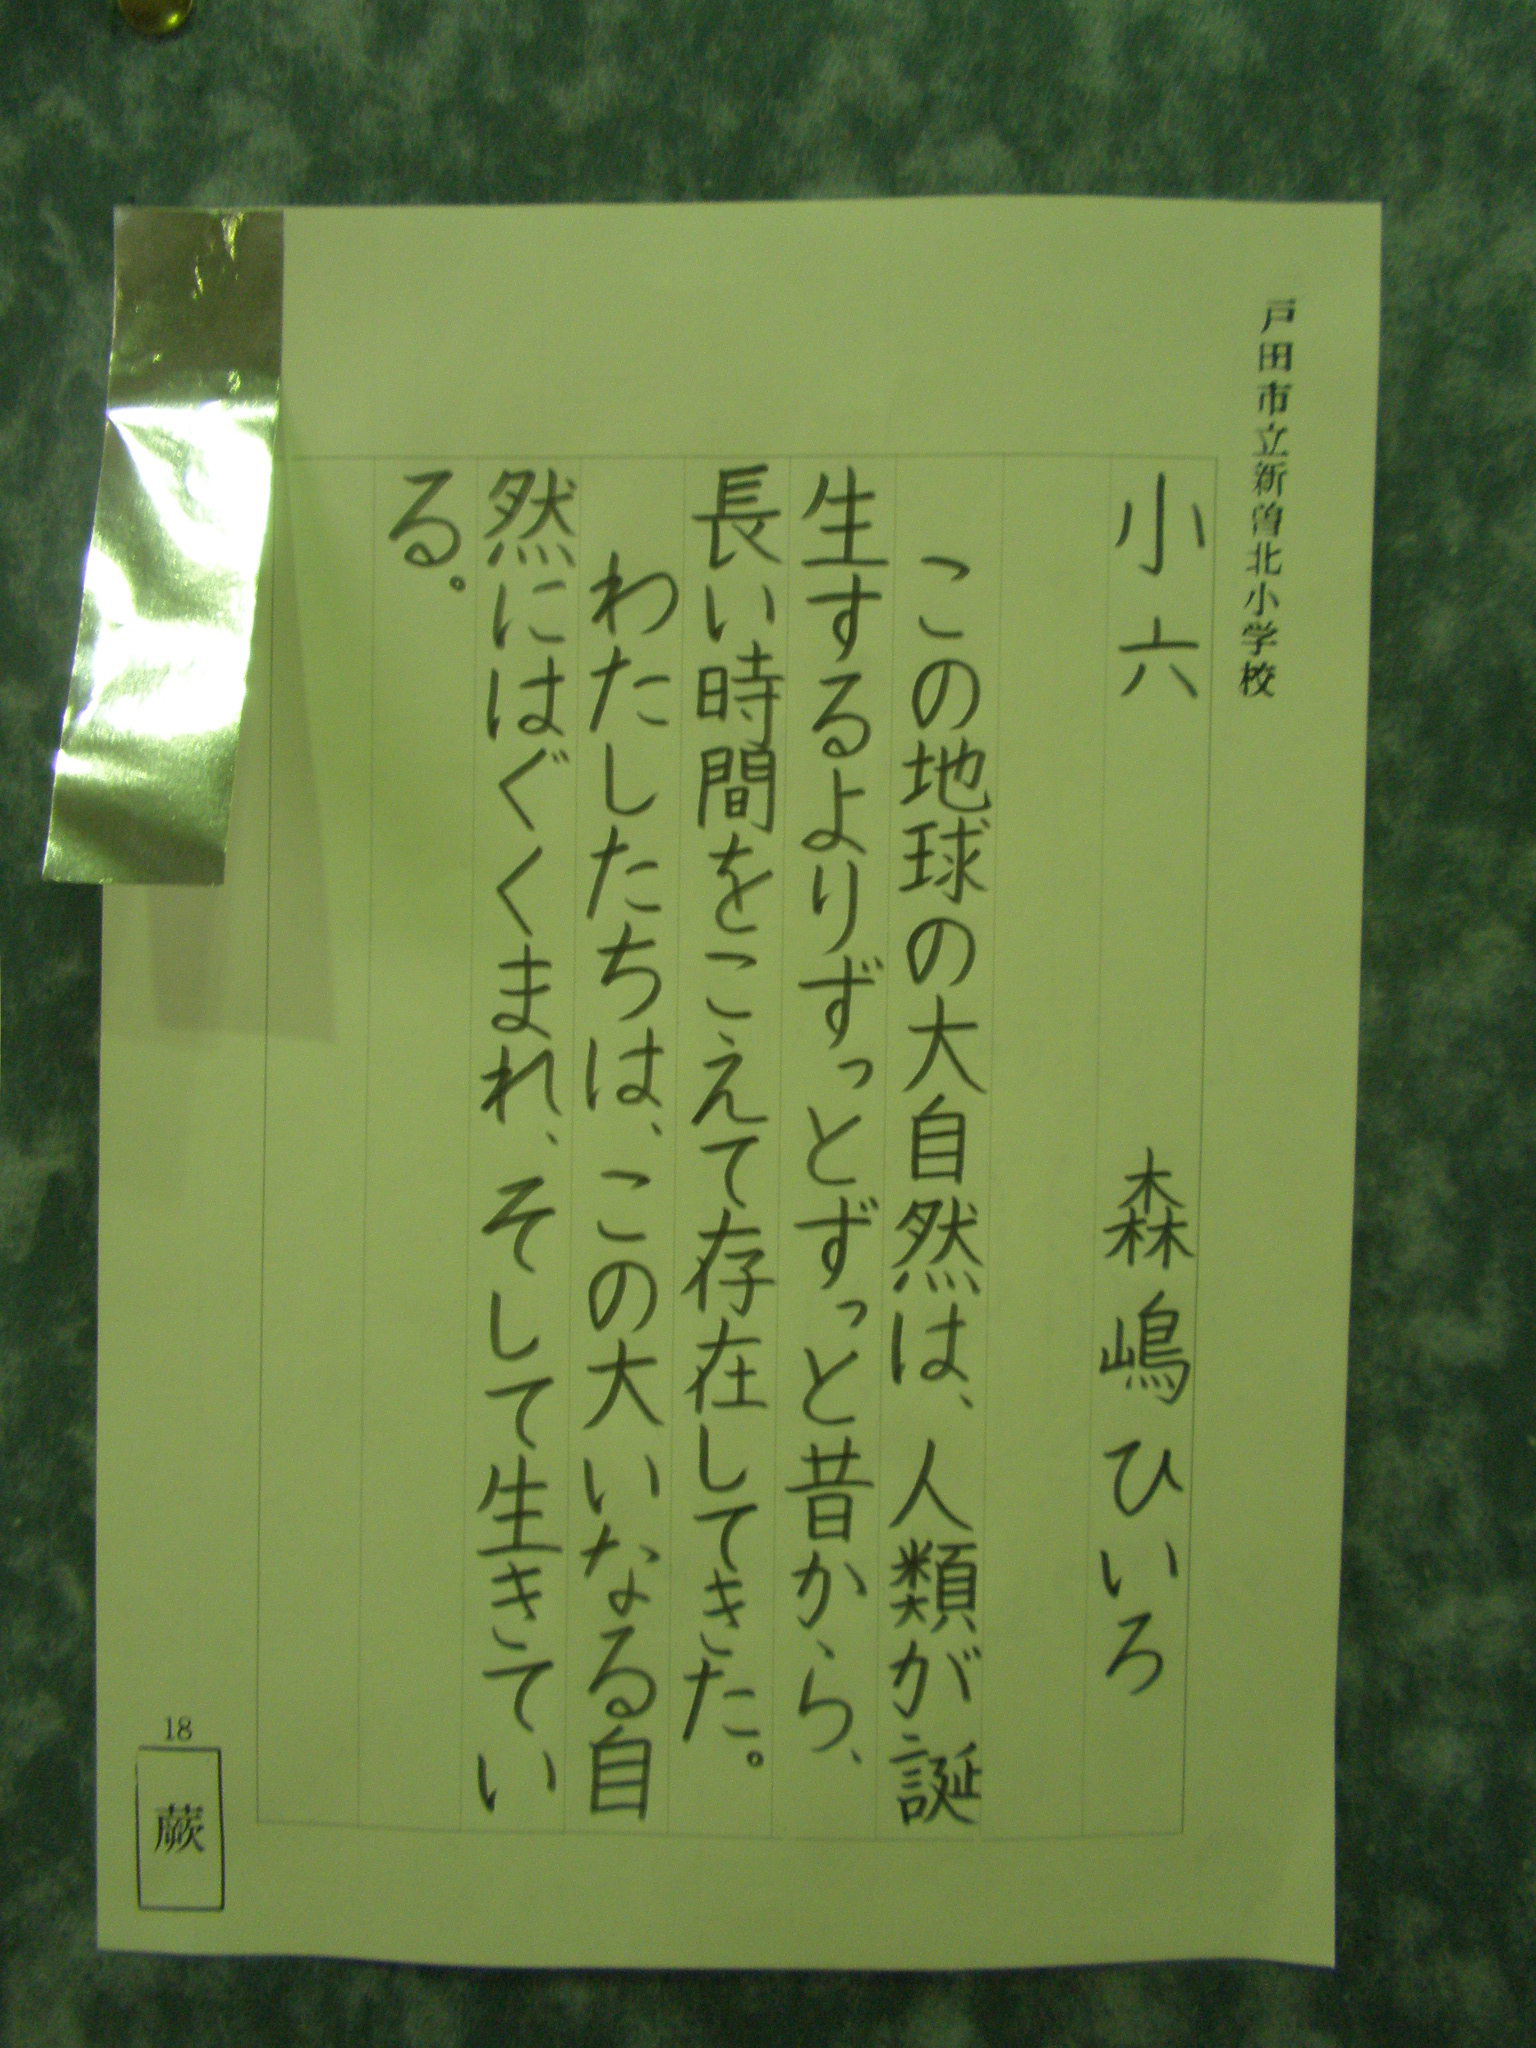 戸田市立新曽北小学校
小六 森嶋ひいろ
この地球の大自然は、人類が誕
生するよりずっとずっと昔から、
長い時間をこえて存在してきた。
わたしたちは、この大いなる自
然にはぐくまれ、そして生きてい
る。
18
蕨